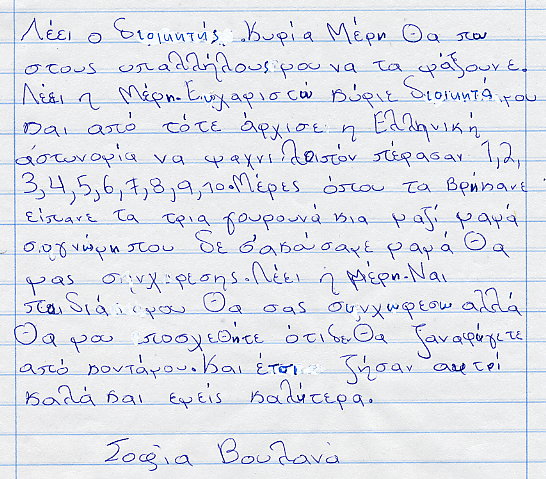 Λέει ο διοικητής. Κυρία Μέρη Θα πω
στους υπαλλήλους μου να τα ψάξουνε.
Λέει η Μέρη. Ευχαριστώ κύριε διοικητά μου
και από τότε άρχισε η Ελληνική
αστυνομία να ψαχνι λοιπόν πέρασαν 1,2,
3,4,5,6,7,8,9,10. Μέρες όπου τα βρήκανε
είπανε τα τρια γουρουνά κια μαζί μαμά
συγνώμη που δε σ'ακούσαμε μαμά Θα
μας συνχιρεσης. Λέει η Μέρη. Ναι
παιδιά μου Θα σας συνχωρεσω αλλά
Θα μου ποσχεθήτε ότι δε Θα ξαναφύγετε
από κοντάμου. Και έτσι ζήσαν αυτοί
καλά και εμείς καλήτερα.
Σοφία Βουλανά